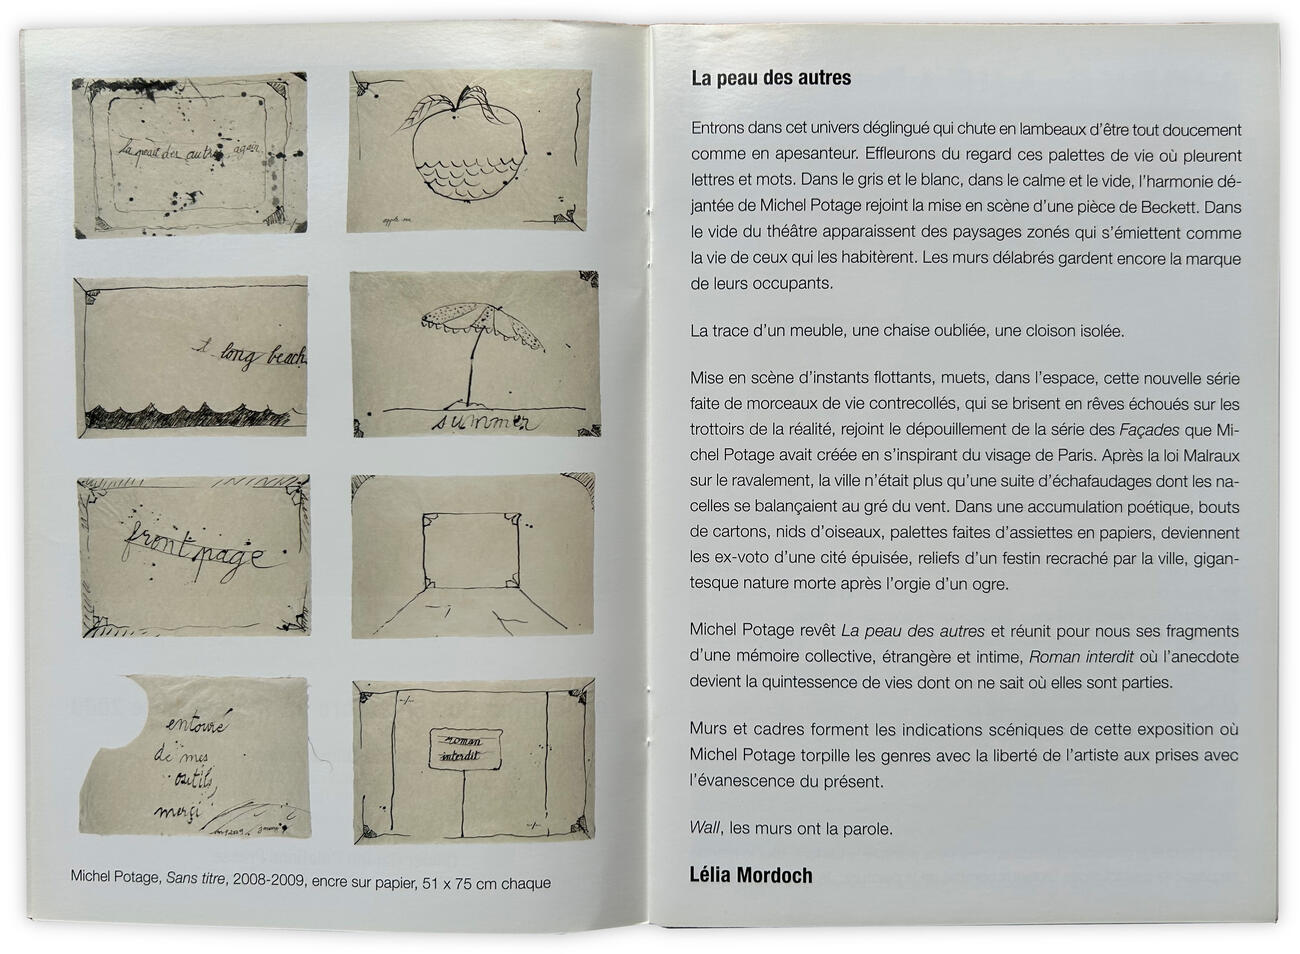 la peau des autres, again
apple sea
long beach
summer
front page
entouré
de mes
outils,
merçi
roman
interdit
Michel Potage, Sans titre, 2008-2009, encre sur papier, 51 x 75 cm chaque
La peau des autres
Entrons dans cet univers déglingué qui chute en lambeaux d’être tout doucement
comme en apesanteur. Effleurons du regard ces palettes de vie où pleurent
lettres et mots. Dans le gris et le blanc, dans le calme et le vide, l’harmonie dé-
jantée de Michel Potage rejoint la mise en scène d’une pièce de Beckett. Dans
le vide du théâtre apparaissent des paysages zonés qui s’émiettent comme
la vie de ceux qui les habitèrent. Les murs délabrés gardent encore la marque
de leurs occupants.
La trace d’un meuble, une chaise oubliée, une cloison isolée.
Mise en scène d’instants flottants, muets, dans l’espace, cette nouvelle série
faite de morceaux de vie contrecollés, qui se brisent en rêves échoués sur les
trottoirs de la réalité, rejoint le dépouillement de la série des Façades que Mi-
chel Potage avait créée en s’inspirant du visage de Paris. Après la loi Malraux
sur le ravalement, la ville n’était plus qu’une suite d’échafaudages dont les na-
celles se balançaient au gré du vent. Dans une accumulation poétique, bouts
de cartons, nids d’oiseaux, palettes faites d’assiettes en papiers, deviennent
les ex-voto d’une cité épuisée, reliefs d’un festin recraché par la ville, gigan-
tesque nature morte après l’orgie d’un ogre.
Michel Potage revêt La peau des autres et réunit pour nous ses fragments
d’une mémoire collective, étrangère et intime, Roman interdit où l’anecdote
devient la quintessence de vies dont on ne sait où elles sont parties.
Murs et cadres forment les indications scéniques de cette exposition où
Michel Potage torpille les genres avec la liberté de l’artiste aux prises avec
l’évanescence du présent.
Wall, les murs ont la parole.
Lélia Mordoch